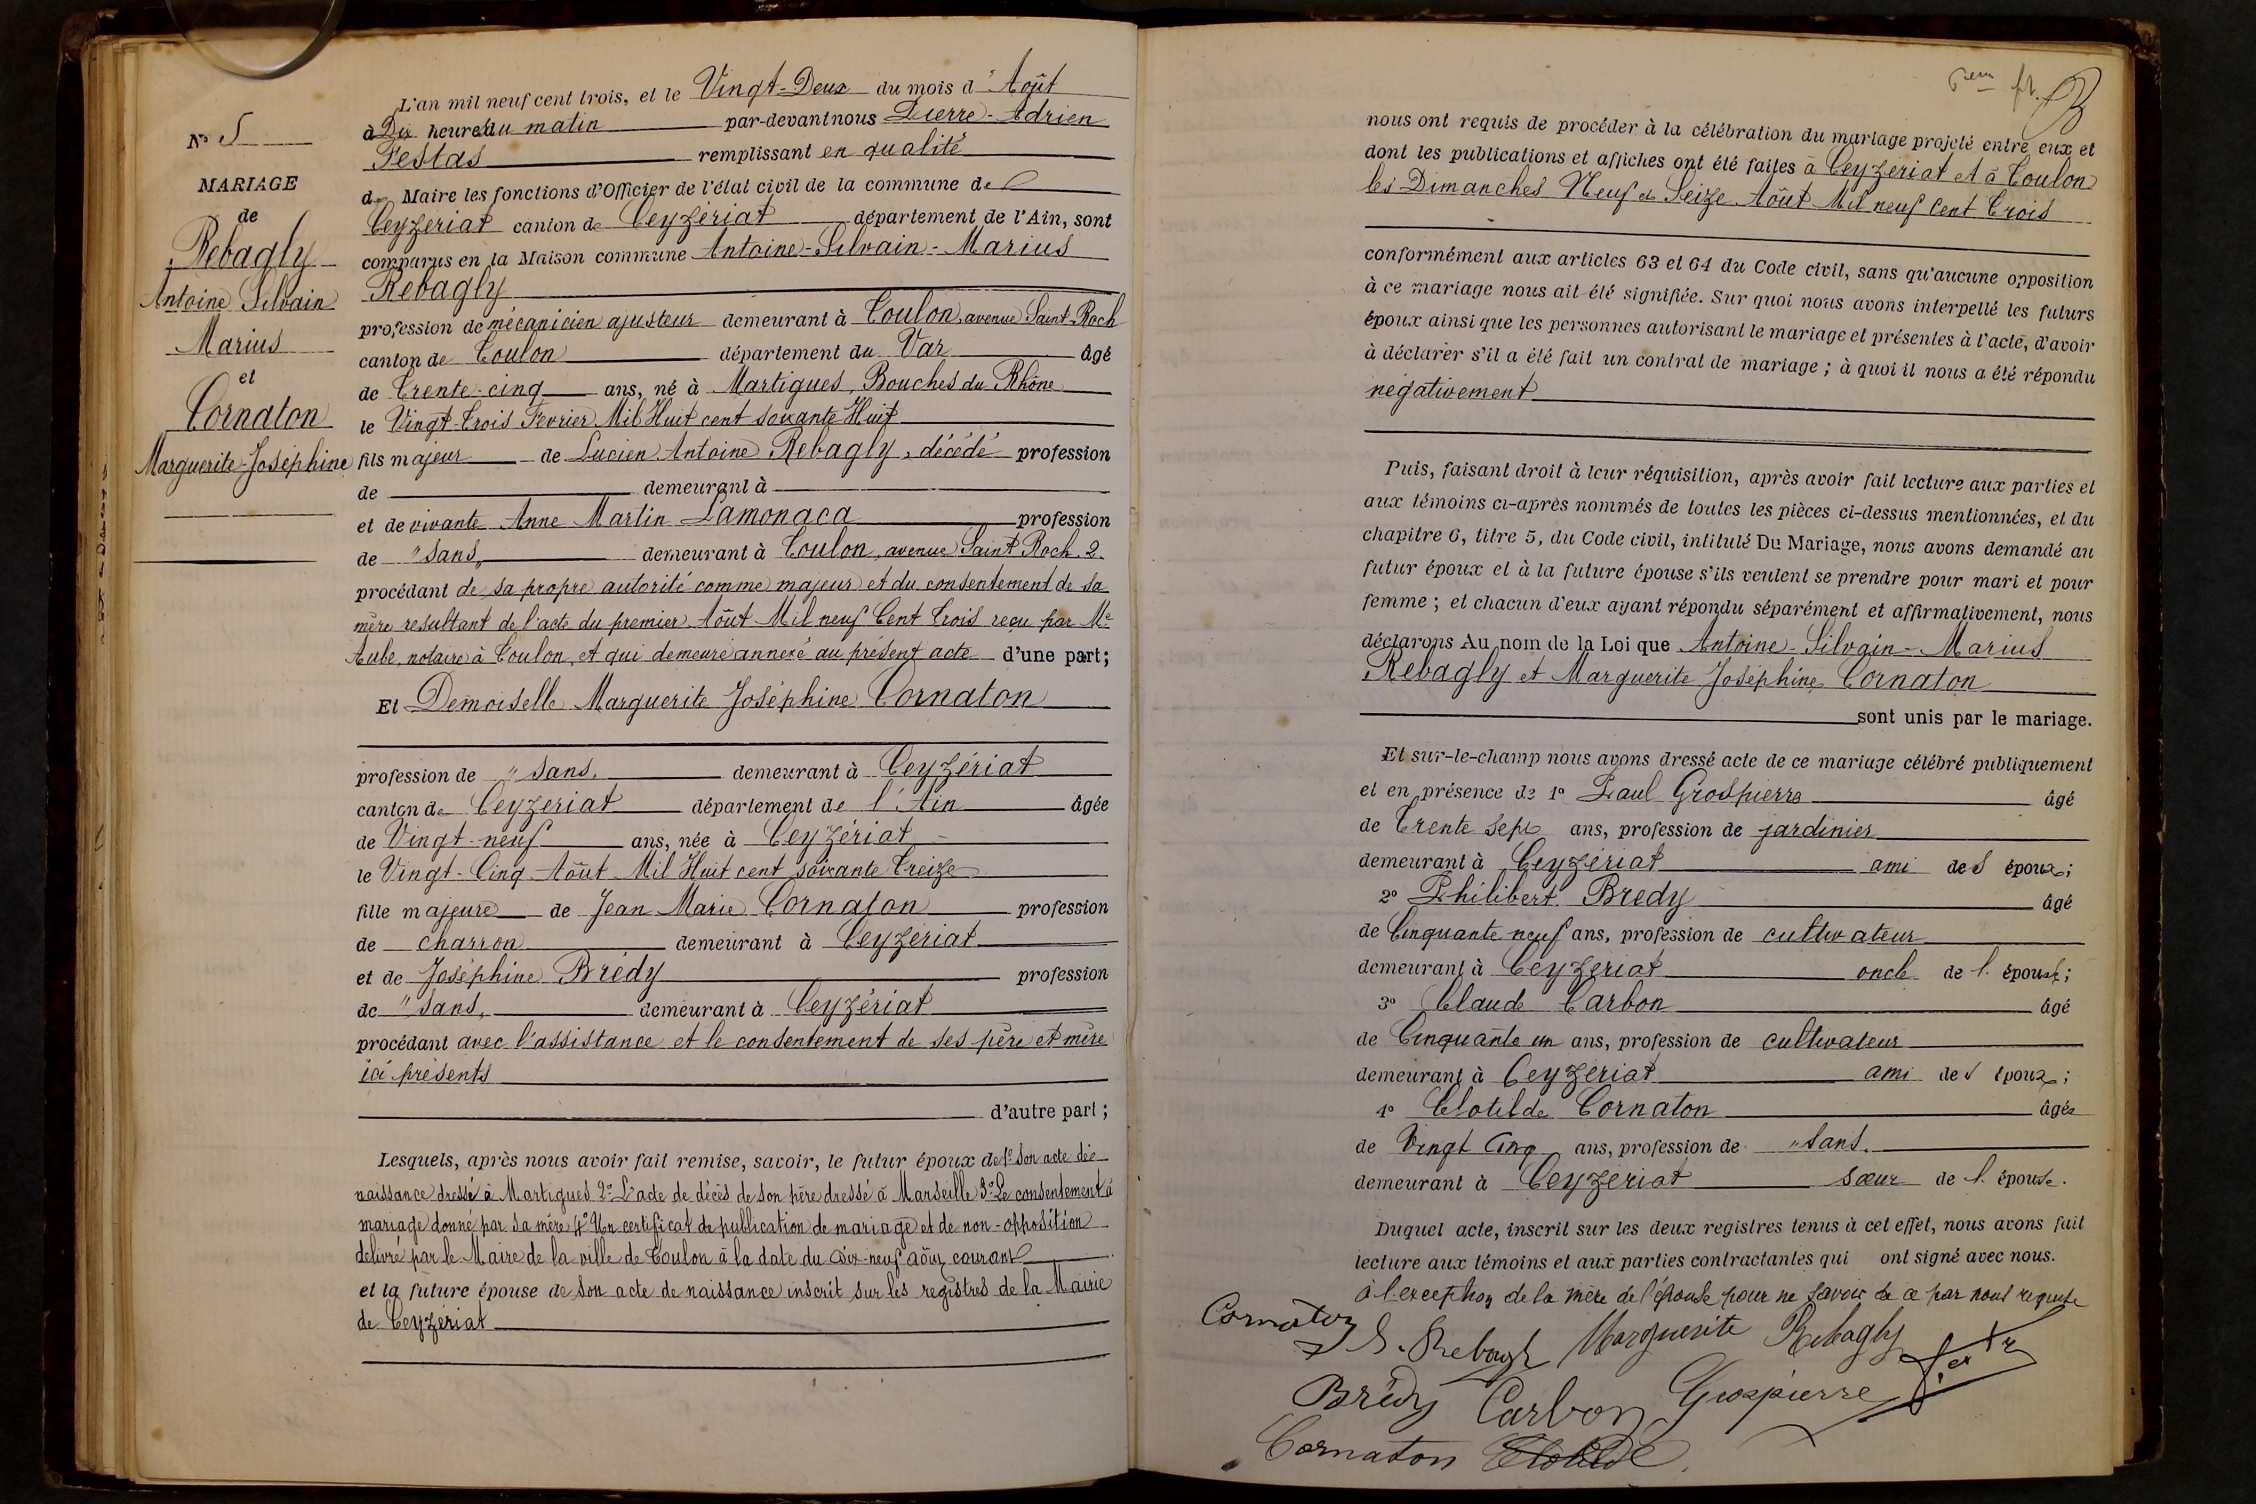 N° 5
MARIAGE
de
Rebagly
Antoine Silvain
Marius
et
Cornaton
Marguerite-Joséphine
L'an mil neuf cent trois, et le Vingt-Deux du mois d'Août
à Dix heures du matin par-devant nous Pierre-Adrien
Festas remplissant en qualité
de Maire les fonctions d'Officier de l'état civil de la commune de
Ceyzériat canton de Ceyzériat département de l'Ain, sont
comparus en la Maison commune Antoine-Silvain-Marius
Rebagly
profession de mécanicien ajusteur demeurant à Toulon, avenue Saint-Roch
canton de Toulon département du Var âgé
de Trente-cinq ans, né à Martigues, Bouches du Rhône
le Vingt-Trois Fevrier Mil Huit cent soixante Huit
fils majeur de Lucien Antoine Rebagly, décédé profession
de demeurant à
et de vivante Anne Martin Lamonaca profession
de "sans" demeurant à Toulon, avenue Saint Roch. 2.
procédant de sa propre autorité comme majeur et du consentement de sa
mère resultant de l'acte du premier Août Mil neuf Cent Trois reçu par Me
Aube, notaire à Toulon, et qui demeure annexé au présent acte d'une part;
Et Demoiselle Marguerite Joséphine Cornaton
profession de "sans" demeurant à Ceyzériat
canton de Ceyzeriat département de l'Ain âgée
de Vingt-neuf ans, née à Ceyzériat
le Vingt-Cinq Août Mil Huit cent soixante Treize
fille majeure de Jean Marie Cornaton profession
de charron demeurant à Ceyzériat
et de Joséphine Brédy profession
de "sans" demeurant à Ceyzériat
procédant avec l'assistance et le consentement de ses père et mère
ici présents
d'autre part;
Lesquels, après nous avoir fait remise, savoir, le futur époux de 1° Son acte de
naissance dressé à Martigues 2° L'acte de décès de son père dressé à Marseille 3° Le consentement à
mariage donné par sa mère 4° Un certificat de publication de mariage et de non-opposition
delivré par le Maire de la ville de Toulon à la date du dix-neuf août courant
et la future épouse de son acte de naissance inscrit sur les registres de la Mairie
de Ceyzériat
nous ont requis de procéder à la célébration du mariage projeté entre eux et
dont les publications et affiches ont été faites à Ceyzériat et à Toulon
les Dimanches Neuf et Seize Août Mil neuf Cent Trois
conformément aux articles 63 et 64 du Code civil, sans qu'aucune opposition
à ce mariage nous ait été signifiée. Sur quoi nous avons interpellé les futurs
époux ainsi que les personnes autorisant le mariage et présentes à l'acte, d'avoir
à déclarer s'il a été fait un contrat de mariage; à quoi il nous a été répondu
négativement
Puis, faisant droit à leur réquisition, après avoir fait lecture aux parties et
aux témoins ci-après nommés de toutes les pièces ci-dessus mentionnées, et du
chapitre 6, titre 5, du Code civil, intitulé Du Mariage, nous avons demandé au
futur époux et à la future épouse s'ils veulent se prendre pour mari et pour
femme; et chacun d'eux ayant répondu séparément et affirmativement, nous
déclarons Au nom de la Loi que Antoine-Silvain-Marius
Rebagly et Marguerite Joséphine Cornaton
sont unis par le mariage.
Et sur-le-champ nous avons dressé acte de ce mariage célébré publiquement
et en présence de 1° Paul Grospierre âgé
de Trente sept ans, profession de jardinier
demeurant à Ceyzériat ami des époux;
2° Philibert Bredy âgé
de Cinquante neuf ans, profession de cultivateur
demeurant à Ceyzériat oncle de l'épouse;
3° Claude Carbon âgé
de Cinquante un ans, profession de cultivateur
demeurant à Ceyzériat ami des époux;
4° Clotilde Cornaton âgée
de Vingt Cinq ans, profession de "sans"
demeurant à Ceyzériat sœur de l'épouse.
Duquel acte, inscrit sur les deux registres tenus à cet effet, nous avons fait
lecture aux témoins et aux parties contractantes qui ont signé avec nous.
à l'exception de la mère de l'épouse pour ne savoir de ce par nous requise
Cornaton S. Rebagly Marguerite Rebagly
Brédy Carbon Grospierre
Cornaton Clotilde